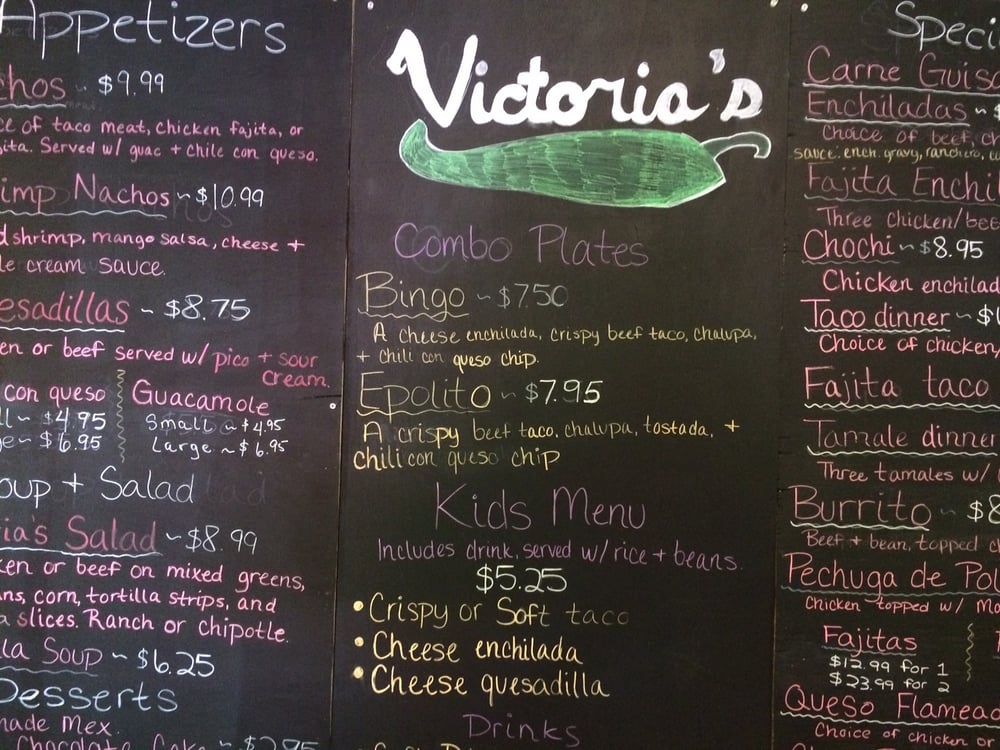 Appetizers
chos ~ $9.99
ce of taco meat, chicken fajita, or
jita. Served w/ guac + chile con queso.
imp Nachos ~ $10.99
d shrimp, mango salsa, cheese +
le cream sauce.
esadillas ~ $8.75
en or beef served w/ pico + sour
cream.
con queso
ll ~ $4.95
ge ~ $6.95
Guacamole
Small ~ $4.95
Large ~ $6.95
oup + Salad
ia's Salad ~ $8.99
ken or beef on mixed greens,
ns, corn, tortilla strips, and
a slices. Ranch or chipotle.
lla Soup ~ $6.25
Desserts
made Mex.
Chocolate Cake ~ $2.95
Victoria's
Combo Plates
Bingo ~ $7.50
A cheese enchilada, crispy beef taco, chalupa,
+ chili con queso chip.
Epolito ~ $7.95
A crispy beef taco, chalupa, tostada, +
chili con queso chip
Kids Menu
Includes drink, served w/ rice + beans.
$5.25
• Crispy or Soft taco
• Cheese enchilada
• Cheese quesadilla
Drinks
Speci
Carne Guisa
Enchiladas ~ $
Choice of beef, ch
sauce: ench. gravy, ranchero,
Fajita Enchil
Three chicken/bee
Chochi ~ $8.95
Chicken enchilad
Taco dinner ~ $
Choice of chicken,
Fajita taco
Tamale dinner
Three tamales w/
Burrito ~ $8
Beef + bean, topped c
Pechuga de Pol
Chicken topped w/ Mo
Fajitas
$12.99 for 1
$23.99 for 2
Queso Flamead
Choice of chicken or